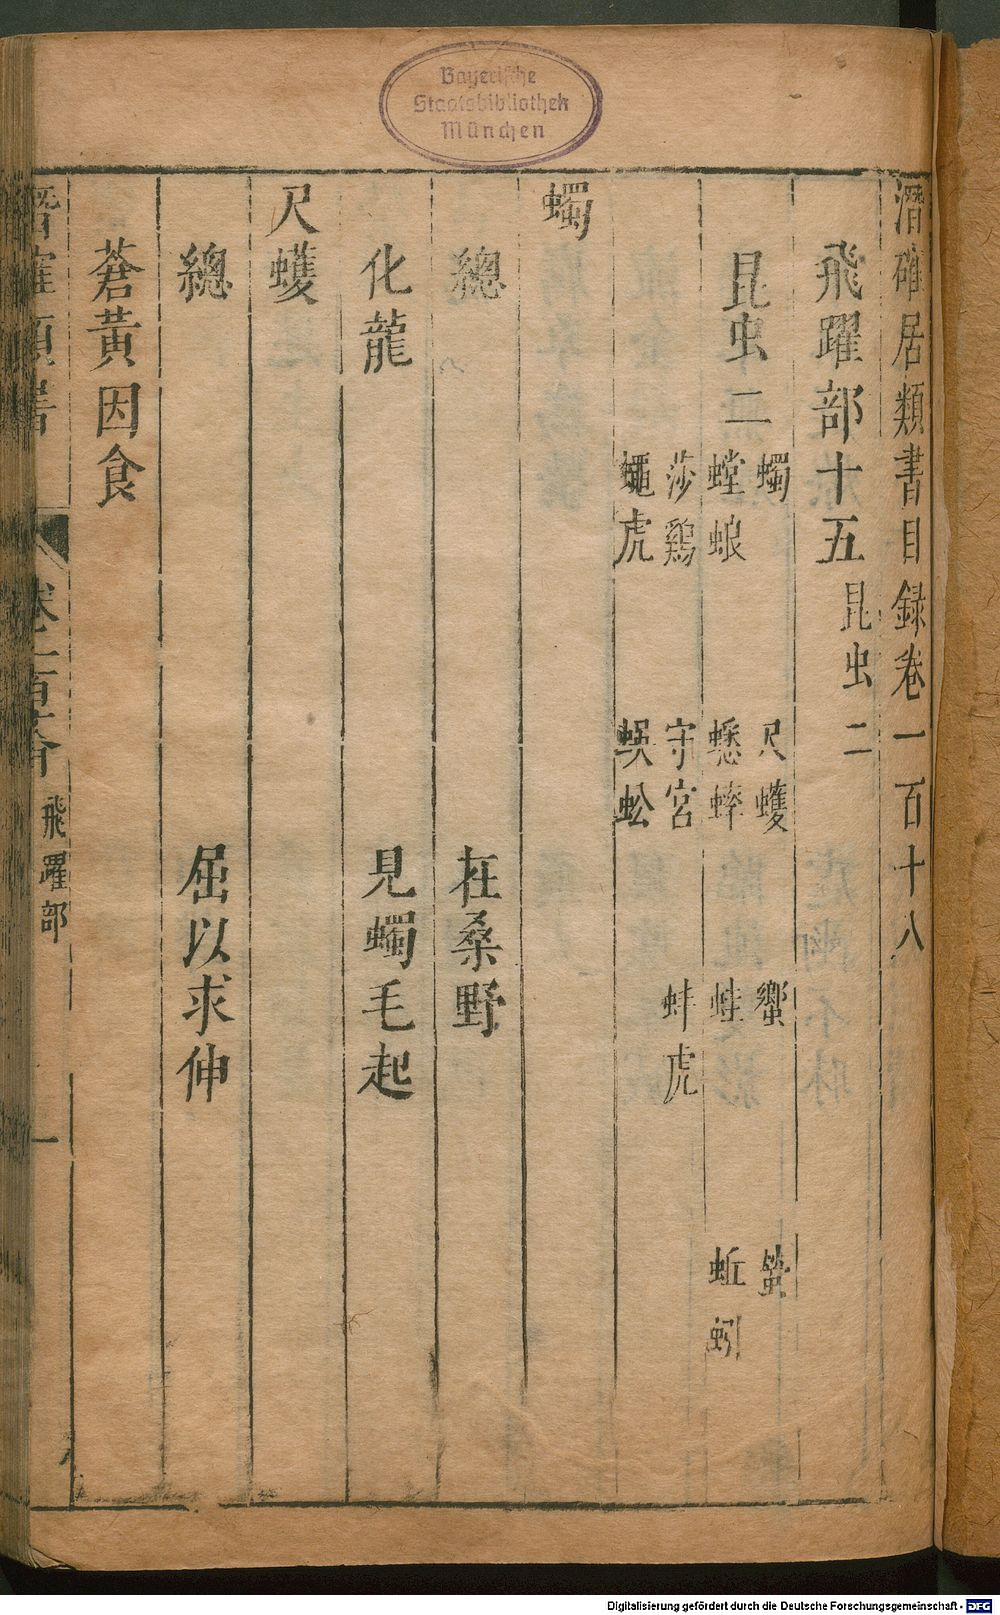 Bayerische
Staatsbibliothek
München
潛確居類書目録卷一百十八
飛躍部十五 昆虫二
昆虫二
蠋 尺蠖 蠁 蛍
螳蜋 蟋蟀 蛙 蚯蚓
莎鷄 守宮 蚌虎
蠅虎 蜈蚣
蠋
總 在桑野
化龍 見蠋毛起
尺蠖
總 屈以求伸
蒼黃因食
飛躍部 一
Digitalisierung gefördert durch die Deutsche Forschungsgemeinschaft - DFG